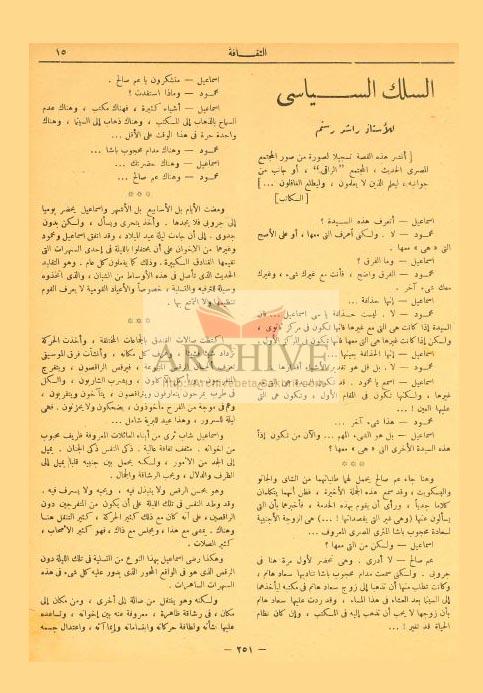 ١٥
الثقافة
السلك السياسي
للأستاذ راشد رستم
[ أنشر هذه القصة تسجيلا لصورة من صور المجتمع
المصرى الحديث ، المجتمع "الراقى" ، أو جانب من
جوانبه ، ليعلم الذين لا يعلمون ، وليطلع الغافلون ... ]
[ الكاتب ]
اسماعيل — أتعرف هذه السيدة ؟
محمود — لا . ولكنى أعرف التى معها ، أو على الأصح
التى « هى » معها .
اسماعيل — وما الفرق ؟
محمود — الفرق واضح ، فأنت مع غيرك شىء ، وغيرك
معك شىء آخر .
اسماعيل — إنها حذلقة ...
محمود — لا . ليست حذلقة يا سى اسماعيل ... فان
السيدة إذا كانت هى التى مع غيرها فانها تكون فى مركز ثانوى ،
ولكن إذا كانت غيرها هى التى معها فانها تكون فى المركز الأول .
اسماعيل — إنها الحذلقة بعينها ...
اسماعيل — اسمع يا محمود .
محمود — هذا شىء آخر ...
اسماعيل — بل هو الشىء المهم ... والآن من تكون إذاً
هذه السيدة الأخرى التى « هى » معها ؟
* * *
وهنا جاء عم صالح يحمل لهما طلباتهما من الشاى والجاتو
والبسكويت ، وقد سمع هذه الجملة الأخيرة ، فظن أنهما يتكلمان
كلاما جدياً ، ورأى أن يقوم بهذه الخدمة ، فأخبرهما بأن التى
يسألون عنها (وهى غير التى يقصدانها ! ...) هى الزوجة الأجنبية
لسعادة محجوب باشا المثرى المصرى المعروف ...
اسماعيل — ولكن من التى معها ؟
عم صالح — لا أدرى . وهى تحضر لأول مرة هنا فى
جروبى . ولكنى سمعت مدام محجوب باشا تناديها سعاد هانم ،
وكانت تطلب منها أن تذهب إلى زوج سعاد هانم فى مكتبه ليأخذهما
إلى السينما بعد العشاء فى هذا المساء . وقد ردت عليها سعاد هانم
بأن زوجها لا يحب أن تذهب إليه فى المكتب ، وإن كان نظام
الحياة قد تغير ! ...
اسماعيل — متشكرون يا عم صالح .
محمود — وماذا استفدت ؟
اسماعيل — أشياء كثيرة ، فهناك مكتب ، وهناك عدم
السماح بالذهاب إلى المكتب ، وهناك ذهاب إلى السينما ، وهناك
واحدة حرة فى هذا الوقت على الأقل ...
محمود — وهناك مدام محجوب باشا ...
اسماعيل — وهناك حضرتك ...
محمود — وهناك عم صالح ...
* * *
ومضت الأيام بل الأسابيع بل الأشهر واسماعيل يحضر يوميا
إلى جروبى فلا يجدها . وأخذ يتحرى ويسأل ، ولكن بدون
جدوى . إلى أن جاءت ليلة عيد الميلاد ، وقد اتفق اسماعيل ومحمود
وغيرهما من الاخوان على أن يحتفلوا بالليلة فى إحدى السهرات التى
تقيمها الفنادق الكبيرة . وذلك كما يفعلون كل عام . وهو التقليد
الحديث الذى تأصل فى هذه الأوساط من الشبان ، والذى اتخذوه
وسيلة للترفيه والتسلية ، خصوصاً والأعياد القومية لا يعرف القوم
تنظيمها ولا التمتع بها .
* * *
اكتظت صالات الفندق بالجماعات المختلفة ، وأخذت الحركة
وهم فى موجة من الفرح مأخوذون ، يضحكون ولا يحزنون . فهى
ليلة للسرور ، وهذا عيد للبرية شامل ...
واسماعيل شاب ثرى من أبناء العائلات المعروفة ظريف محبوب
من اخوانه . مثقف ثقافة عالية . ذكى النفس ذكى الجنان . يميل
إلى الجد من الأمور ، ولكنه يحمل بين جنبيه قلبا يميل إلى
الظرف والدلال ، ويحب الرشاقة والجمال .
وهو يحسن الرقص ولا يبتذل فيه ، ويحبه ولا يسرف فيه .
وقد وطد النفس فى تلك الليلة على أن يكون من المتفرجين دون
الراقصين ، على أنه كان مع ذلك كثير الحركة ، كثير التنقل هنا
وهناك . يمضى مع هذا ، ويجلس مع ذاك ، فهو كثير الأصحاب ،
كثير الصلات .
وهكذا رضى اسماعيل بهذا النوع من التسلية فى تلك الليلة دون
الرقص الذى هو فى الواقع المحور الذى يدور عليه كل شىء فى هذه
السهرات الساهرات .
ولكنه وهو يتنقل من صالة إلى أخرى ، ومن مكان إلى
مكان ، فى رشاقة ظاهرية ، معروفة عنه بين إخوانه ، وتساعده
عليها نشأته ولطافة حركاته وابتساماته وإيماءاته ، واعتدال جسمه
— ٢٥١ —
ARCHIVE